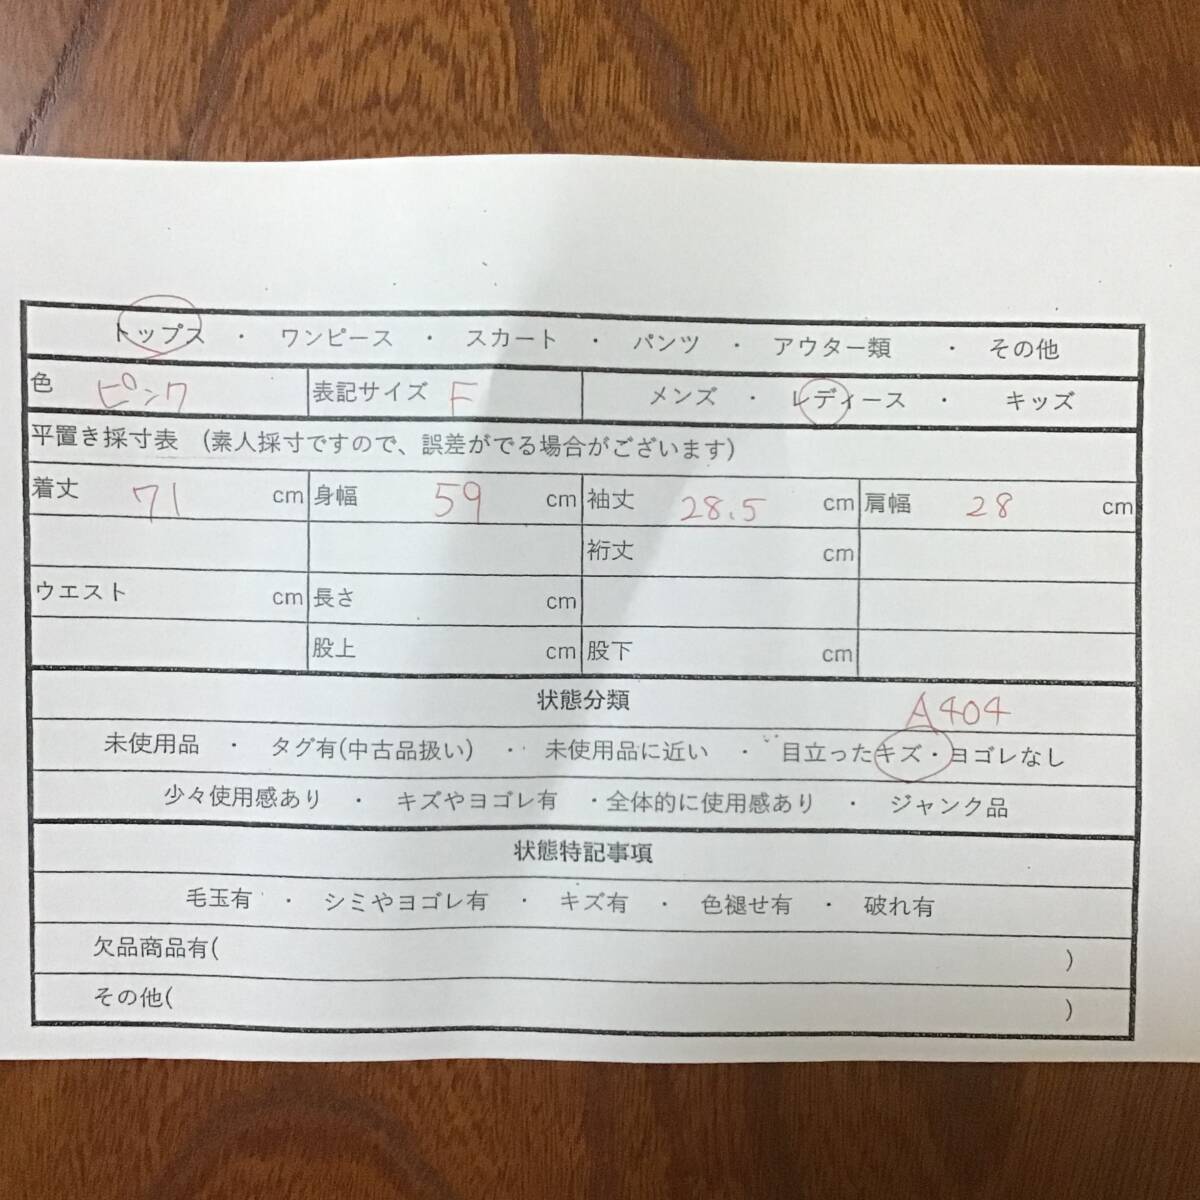 トップス ・ ワンピース ・ スカート ・ パンツ ・ アウター類 ・ その他
色 ピンク 表記サイズ F メンズ ・ レディース ・ キッズ
平置き採寸表 (素人採寸ですので、誤差がでる場合がございます)
着丈 71 cm 身幅 59 cm 袖丈 28.5 cm 肩幅 28 cm
裄丈 cm
ウエスト cm 長さ cm
股上 cm 股下 cm
状態分類 A404
未使用品 ・ タグ有(中古品扱い) ・ 未使用品に近い ・ 目立ったキズ・ヨゴレなし
少々使用感あり ・ キズやヨゴレ有 ・全体的に使用感あり ・ ジャンク品
状態特記事項
毛玉有 ・ シミやヨゴレ有 ・ キズ有 ・ 色褪せ有 ・ 破れ有
欠品商品有( )
その他( )